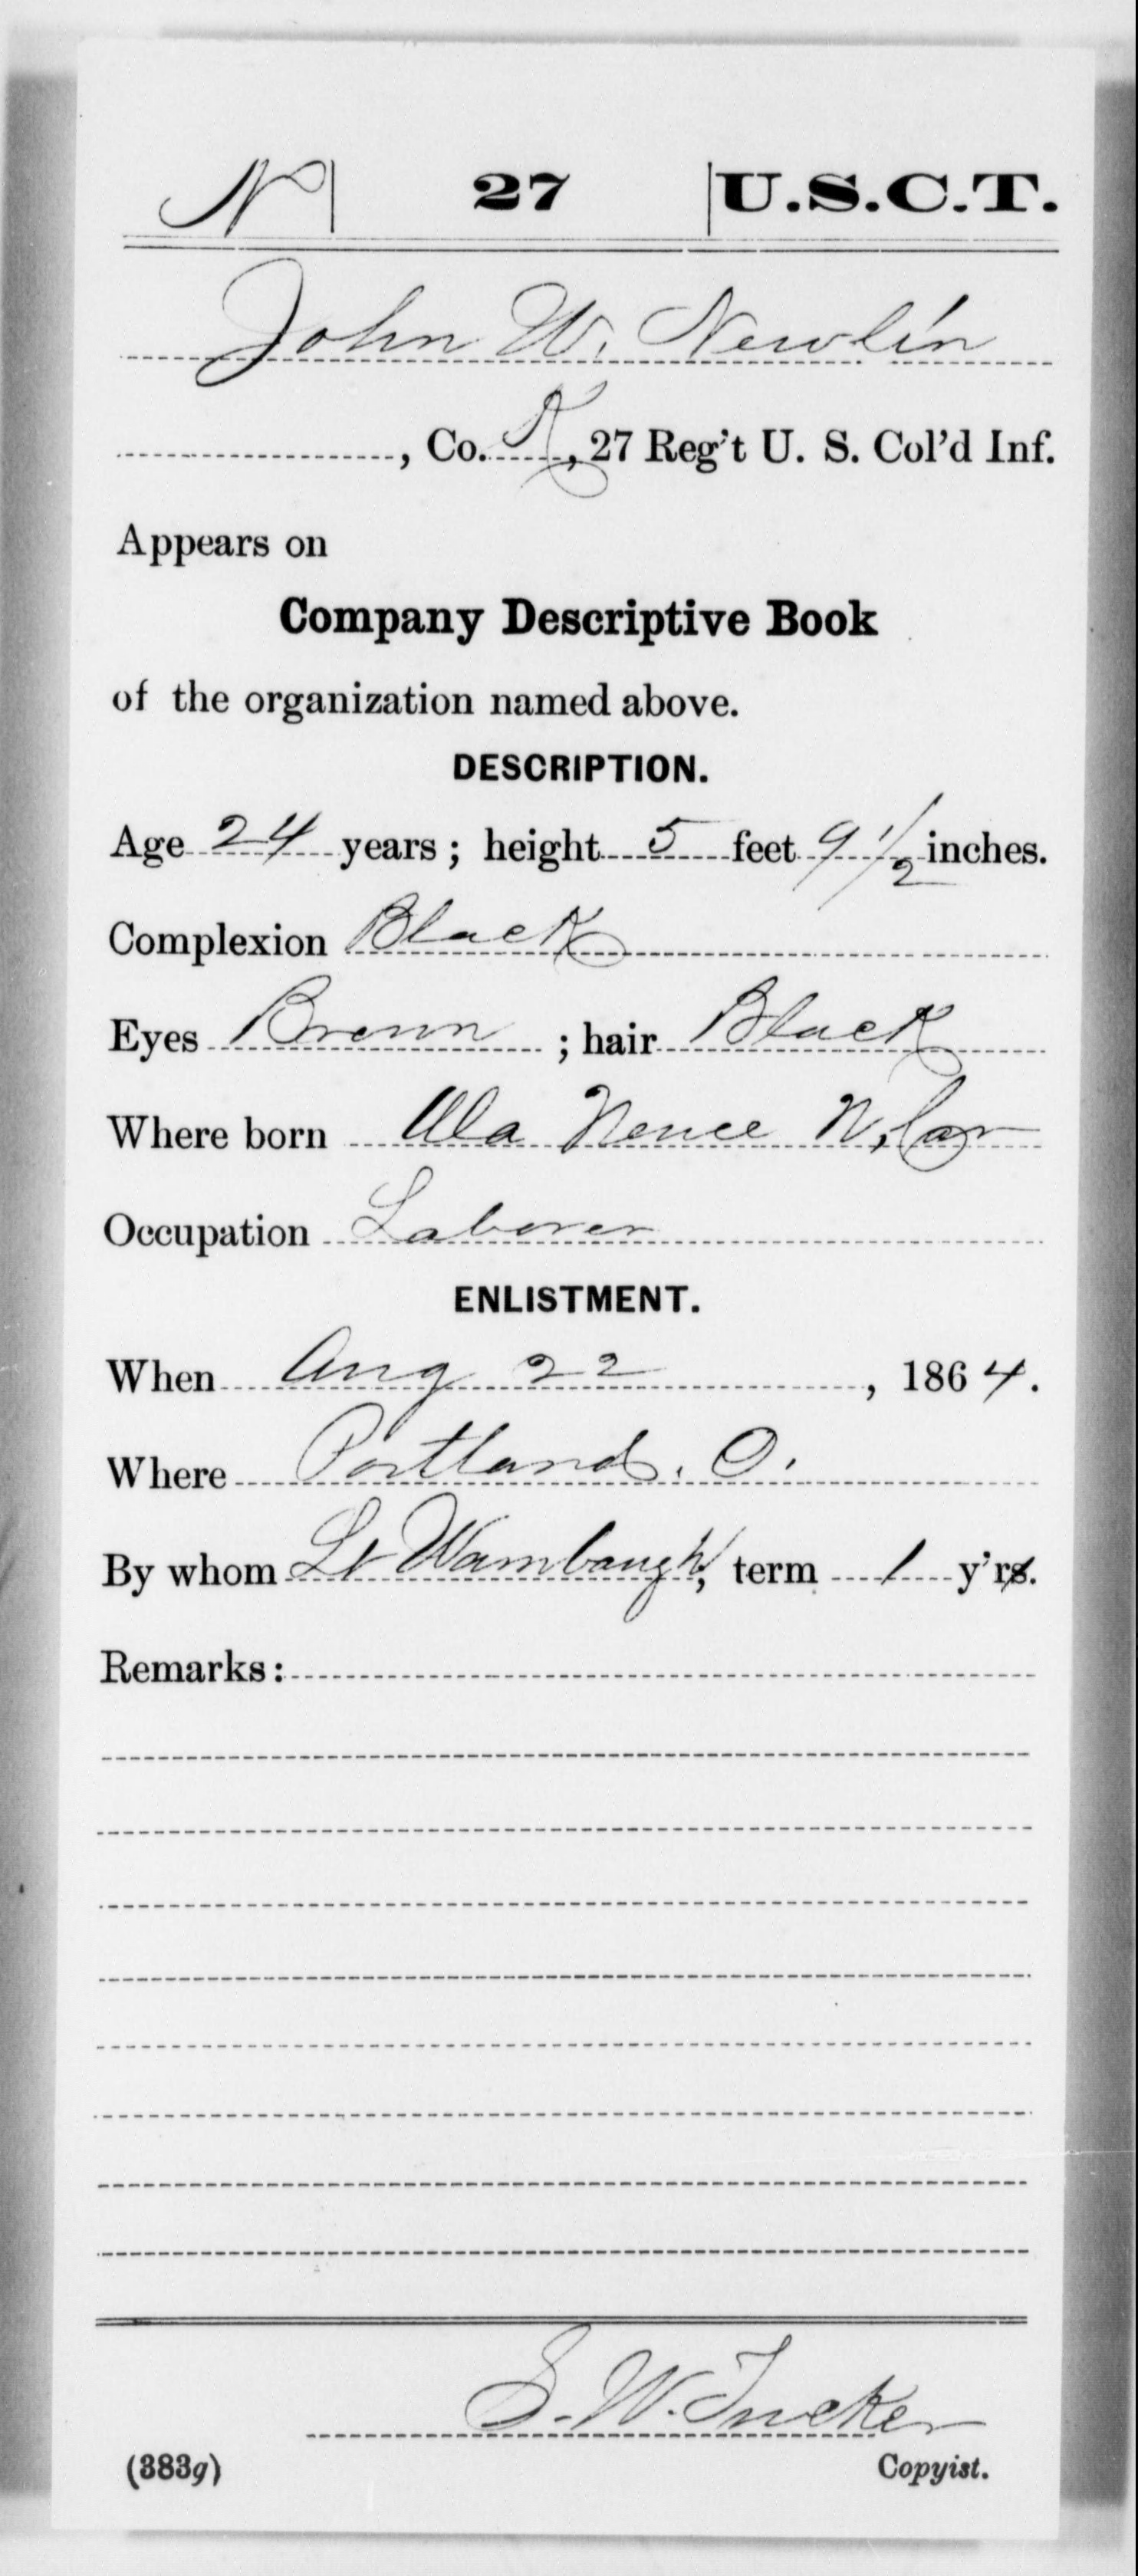 N | 27 | U.S.C.T.
John W. Newlin
, Co. K, 27 Reg't U. S. Col'd Inf.
Appears on
Company Descriptive Book
of the organization named above.
DESCRIPTION.
Age 24 years; height 5 feet 9 1/2 inches.
Complexion Black
Eyes Brown; hair Black
Where born Ala Nence N. Car
Occupation Laborer
ENLISTMENT.
When Aug 22, 1864.
Where Portland. O.
By whom Lt Wambaugh; term 1 y'rs.
Remarks:
S. W. Tucker
(383g) Copyist.